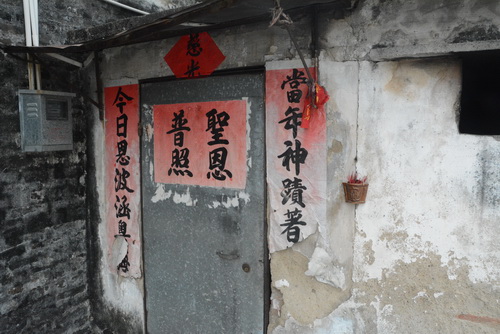 當年神蹟著
聖恩
普照
今日恩波涵